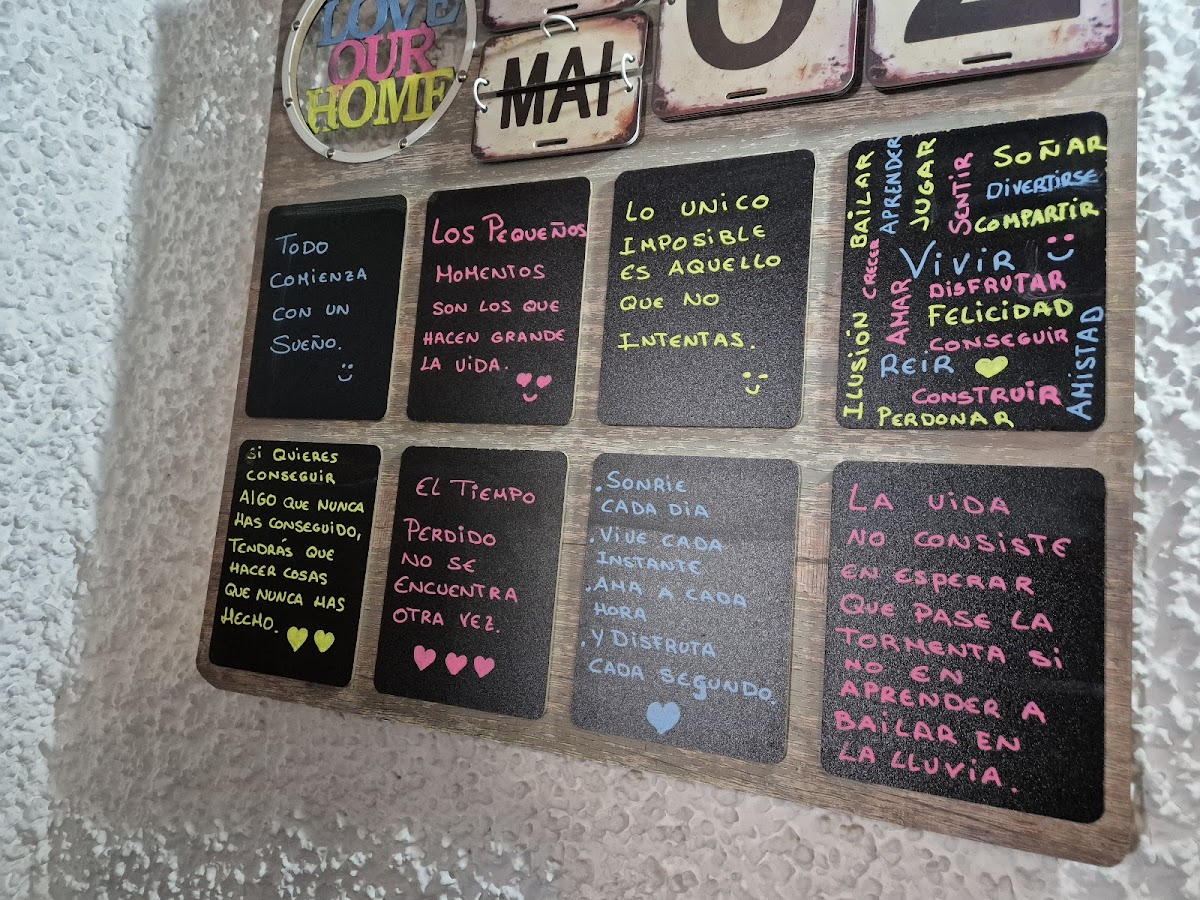 LOVE
OUR
HOME
MAI
02
TODO
COMIENZA
CON UN
SUEÑO.
LOS PEQUEÑOS
MOMENTOS
SON LOS QUE
HACEN GRANDE
LA VIDA.
LO UNICO
IMPOSIBLE
ES AQUELLO
QUE NO
INTENTAS.
ILUSIÓN
CRECER
BAILAR
APRENDER
JUGAR
SENTIR
SOÑAR
DIVERTIRSE
COMPARTIR
VIVIR
AMAR
DISFRUTAR
FELICIDAD
CONSEGUIR
REIR
CONSTRUIR
PERDONAR
AMISTAD
SI QUIERES
CONSEGUIR
ALGO QUE NUNCA
HAS CONSEGUIDO,
TENDRÁS QUE
HACER COSAS
QUE NUNCA HAS
HECHO.
EL TIEMPO
PERDIDO
NO SE
ENCUENTRA
OTRA VEZ.
.SONRIE
CADA DIA
.VIVE CADA
INSTANTE
.AMA A CADA
HORA
.Y DISFRUTA
CADA SEGUNDO.
LA VIDA
NO CONSISTE
EN ESPERAR
QUE PASE LA
TORMENTA SI
NO EN
APRENDER A
BAILAR EN
LA LLUVIA.